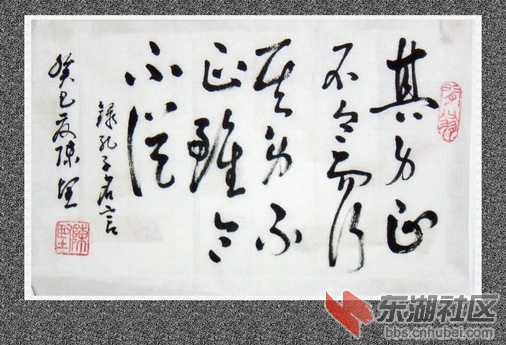 其身正
不令而行
其身不
正虽令
不從
錄孔子名言
癸巳夏陈堃
东湖社区
bbs.cnhubei.com